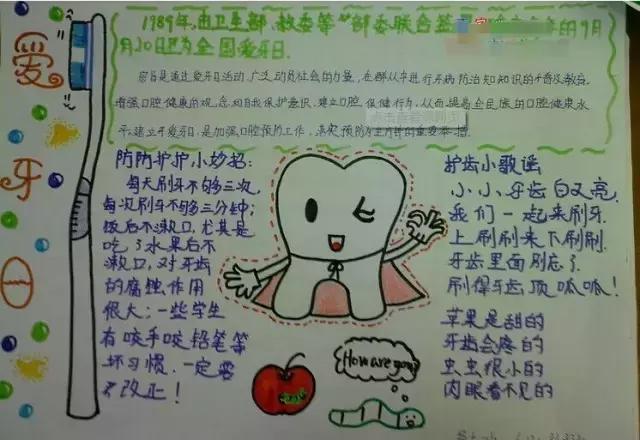 爱
牙
日
1989年,由卫生部、教委等 部委联合签 的9月
月20日定为全国爱牙日.
宗旨是通过爱牙日活动,广泛动员社会的力量,在群众中进行牙病防治知识的普及教育,
增强口腔健康的观念和自我保护意识,建立口腔保健行为,从而提高全民族的口腔健康水
平.建立爱牙日,是加强口腔预防工作,落实预防为主方针的重要举措.
防防护护小妙招:
每天刷牙不够三次,
每次刷牙不够三分钟;
饭后不漱口,尤其是
吃了水果后不
漱口,对牙齿
的腐蚀作用
很大;一些学生
有咬手咬铅笔等
坏习惯,一定要
改正!
护齿小歌谣
小小牙齿白又亮,
我们一起来刷牙.
上刷刷来下刷刷.
牙齿里面别忘了.
刷得牙齿顶呱呱!
苹果是甜的
牙齿会疼的
虫虫很小的
肉眼看不见的
How are you?